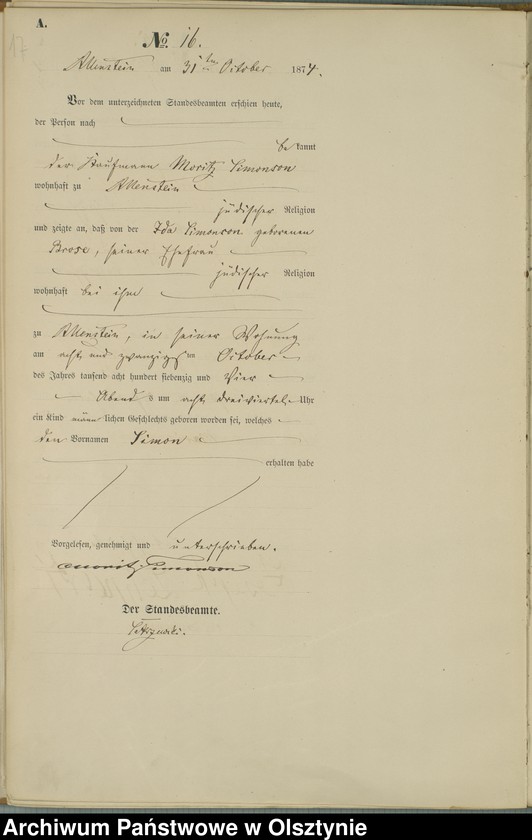 A.
17
No. 16.
Allenstein am 31ten October 1874.
Vor dem unterzeichneten Standesbeamten erschien heute,
der Person nach
bekannt
der Kaufmann Moritz Simonson
wohnhaft zu Allenstein
jüdischer Religion
und zeigte an, daß von der Ida Simonson geborenen
Brose, seiner Ehefrau
jüdischer Religion
wohnhaft bei ihm
zu Allenstein, in seiner Wohnung
am acht und zwanzigsten October
des Jahres tausend acht hundert siebenzig und Vier
Abends um acht dreiviertel Uhr
ein Kind männlichen Geschlechts geboren worden sei, welches
den Vornamen Simon
erhalten habe
Vorgelesen, genehmigt und unterschrieben.
Moritz Simonson
Der Standesbeamte.
Archiwum Państwowe w Olsztynie